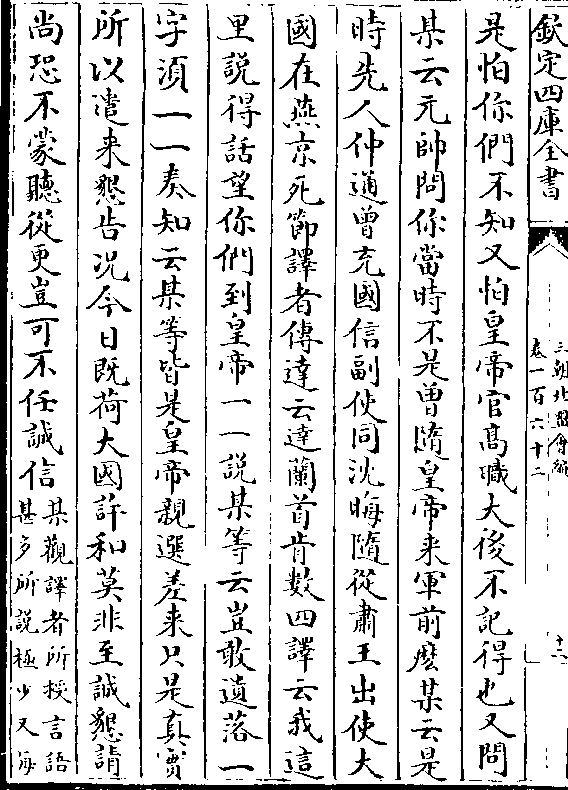 欽定四庫全書
三朝北盟會編
卷一百六十二
十二
是怕你們不知又怕皇帝官髙職大後不記得也又問
某云元帥問你當時不是曽隨皇帝来軍前麽某云是
時先人仲通曾充國信副使同沈晦隨從肅王出使大
國在燕京死節譯者傳達云達蘭首肯數四譯云我這
里説得話望你們到皇帝一一說某等云豈敢遺落一
字湏一一奏知云某等皆是皇帝親選差来只是真實
所以遣来懇告况今日既荷大國許和莫非至誠懇請
尚恐不蒙聽從更豈可不任誠信某觀譯者所授言語
甚多所説極少又海